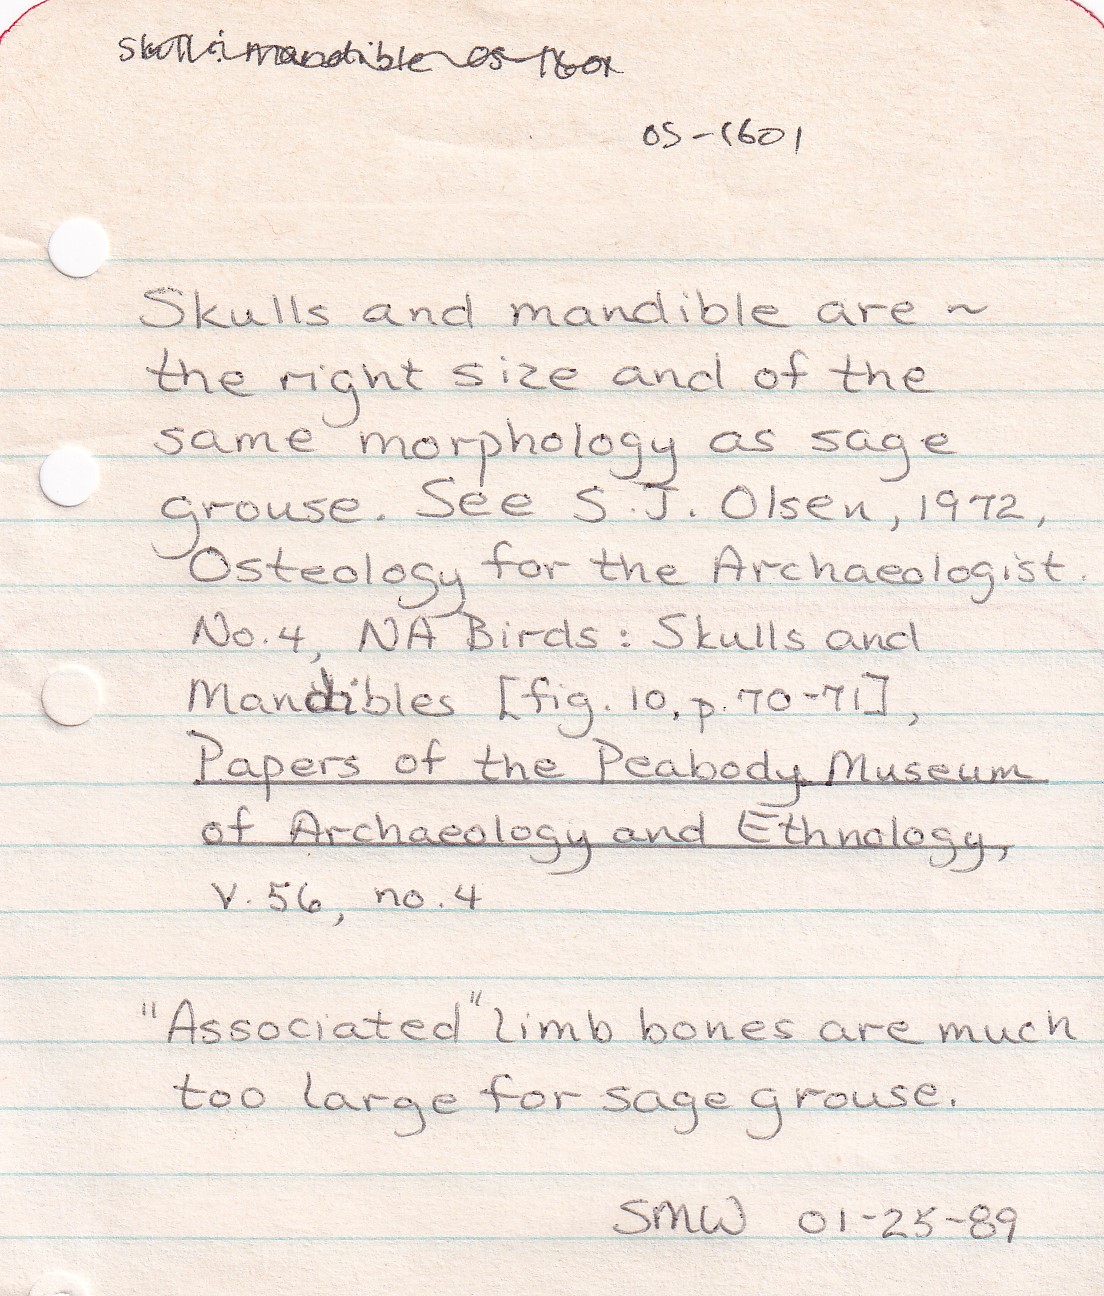 Skull & mandible OS-160
OS-1601
Skulls and mandible are ~
the right size and of the
same morphology as sage
grouse. See S.J. Olsen, 1972,
Osteology for the Archaeologist.
No. 4, NA Birds: Skulls and
Mandibles [fig. 10, p. 70-71],
Papers of the Peabody Museum
of Archaeology and Ethnology,
v. 56, no. 4
"Associated" limb bones are much
too large for sage grouse.
SMW 01-25-89